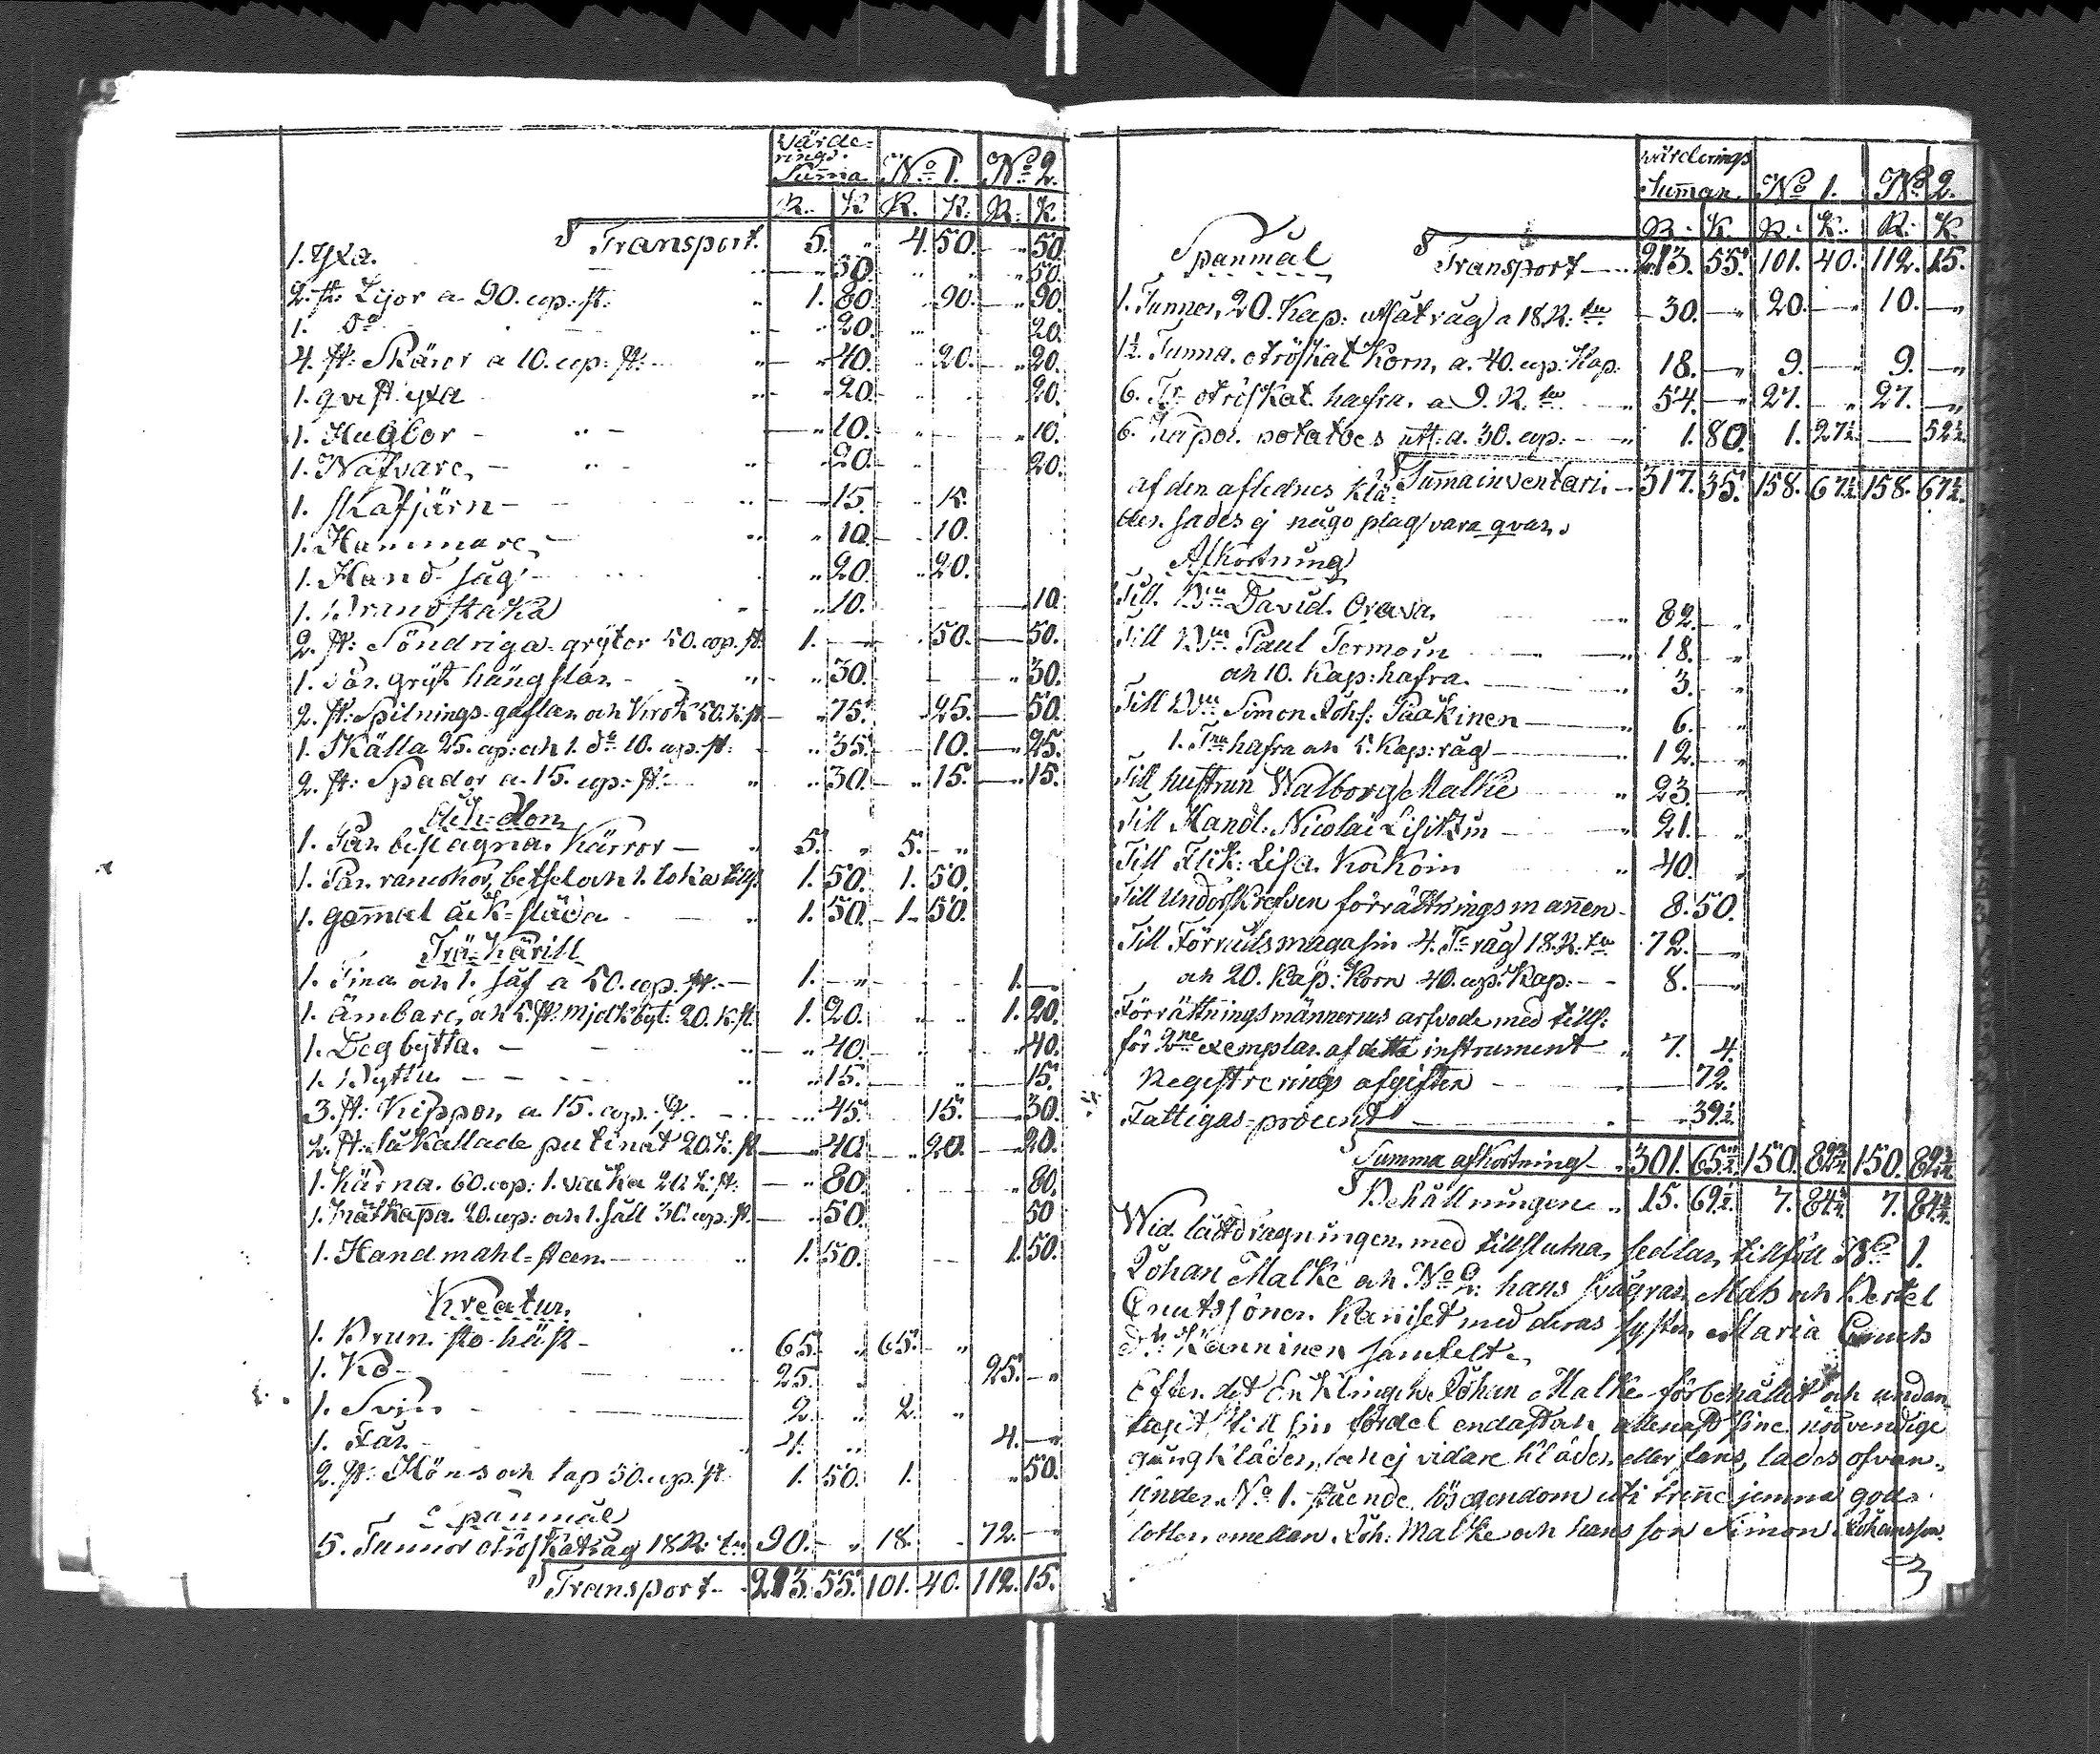 Värde-
rings-
Suma No 1. No 2.
R. K R. K. R. K.
Transport. 5. „ 4. 50. — „ 50.
1. Yxa. — „ 50. „ „ „ 50.
2. st: Lijor a 90. cop: st: „ 1. 80. „ 90. — „ 90.
1. do — „ 20. „ 20.
4. st: Skäror a 10. cop: st: „ — „ 40. „ 20. — „ 20.
1. qvist yxa — „ 20. 20.
1. Hugbor — „ — „ 10. „ 10.
1. Nafvare, — „ 20. 20.
1. skafjärn — „ 15. „ 15.
1. Hammare, — „ 10. — 10.
1. Hand såg — „ 20. „ 20.
1. Brandstaka „ 10. — 10.
2. st: Söndriga grytor 50. cop. st: 1. — „ 50. — 50.
1. Par. gryt hängslar — „ 30. — „ 30.
2. st: Spilnings-gaflar och krok 50. k. st — „ 75. „ 25. — 50.
1. Skälla 25. cop: och 1. do 10. cop: st: „ 35. — 10. — „ 25.
2. st: Spador a 15. cop: st: „ „ 30. — „ 15. — „ 15.
Åk-don
1. Par beslagna Kärror — „ 5. „ 5. — „
1. Par. rancskor, betsel och 1. loka tills: 1. 50. 1. 50.
1. gammal åk-släda — „ 1. 50. — 1. 50.
Trä-kärill
1. Tina och 1. såf a 50. cop. st: — 1. — „ 1. —
1. Ämbare, och 5. st: mjölkbyt: 20. k. st: 1. 20. „ „ 1. 20.
1. Degbytta. — „ 40. „ 40.
1. Bytta — „ 15. „ 15.
3. st: Kippor, a 15. cop. st. — „ 45. 15. — 30.
2. st: så kallade putinat 20. k: st — 40. 20. — 20.
1. Kärna. 60. cop: 1. vacka 20. k: st: — „ 80. „ 80.
1. Mätkapa 20. cop: och 1. såll 30. cop. st. — „ 50. 50
1. Handmahl-steen — „ 1. 50. 1. 50.
Kreatur,
1. Brun sto-häst — „ 65. „ 65. „
1. Ko — 25. „ 25. — „
1. Svin — 2. „ 2. „
1. Får — 4. „ 4. — „
2. st: Höns och tap 50. cop. st. 1. 50. 1. „ 50.
Spanmål
5. Tunnor otröskat råg 18 R: tn: 90. — „ 18. 72. —
Transport — 213. 55. 101. 40. 112. 15.
värderings
Summan. No 1. No 2.
R. K R. K. R. K.
Spanmål Transport — 213. 55. 101. 40. 112. 15.
1. Tunna, 20. Kap: utsåt råg a 18. R: tn — 30. — „ 20. — „ 10. — „
1½ Tunna. otröskat Korn, a. 40. cop: Kap. 18. — „ 9. — „ 9. — „
6. Tr otröskat hafra. a 9. R. tn — „ 54. — „ 27. „ 27. — „
6. kapor. potatoes uts: a. 30. cop: — „ 1. 80. 1. 27½. — 52½.
Suma inventari — 317. 35. 158. 67½. 158. 67½.
af den aflednes klä-
der. sades ej någo plag vara qvar.
Afkortning
Till Bn David Orava, „ 82. „
Till Bn Paul Termoin — 18. „
och 10. Kap: hafra. — 3. „
Till Bn Simon Johs: Pääkinen — 6. „
1. Tna hafra och 5. Kap: råg — 12. „
Till hustrun Walborg Malke „ 23. —
Till Handl: Nicolai Lisitzin — 21. „
Till Flik: Lisa Kokoin „ 40. „
Till Underskrefven förrättningsmannen — 8. 50.
Till Förrådsmagasin 4. Tr råg 18. R. tn 72. — „
och 20. Kap: Korn 40. cop: Kap: — 8. — „
Förrättningsmännernas arfvode med tills:
för 2ne exemplar af detta instrument „ 7. 4.
Registrerings afgiften — 72.
Fattigas-procent — 39½.
Summa afkortning — 301. 65½ 150. 82¾ 150. 82¾
Behållningen „ 15. 69½. 7. 84¾. 7. 84¾
Wid lottdragningen, med tillslutna, sedlar, tillföll No 1.
Johan Malke och No 2: hans svågrar Mats och Bertel
Cnutssöner Kaniset med deras syster Maria Cnuts
Känninen samfelt.
Efter det Enklingen Johan Malke förbehållit och undan
tagit till sin fördel endast och allenast sine nödvendige
gångkläder, och ej vidare kläder eller sens, lades ofvan-
under No 1. stående lösegendom uti trenne jemna gods
lotter, emellan Joh: Malke och hans son Simon Johansson